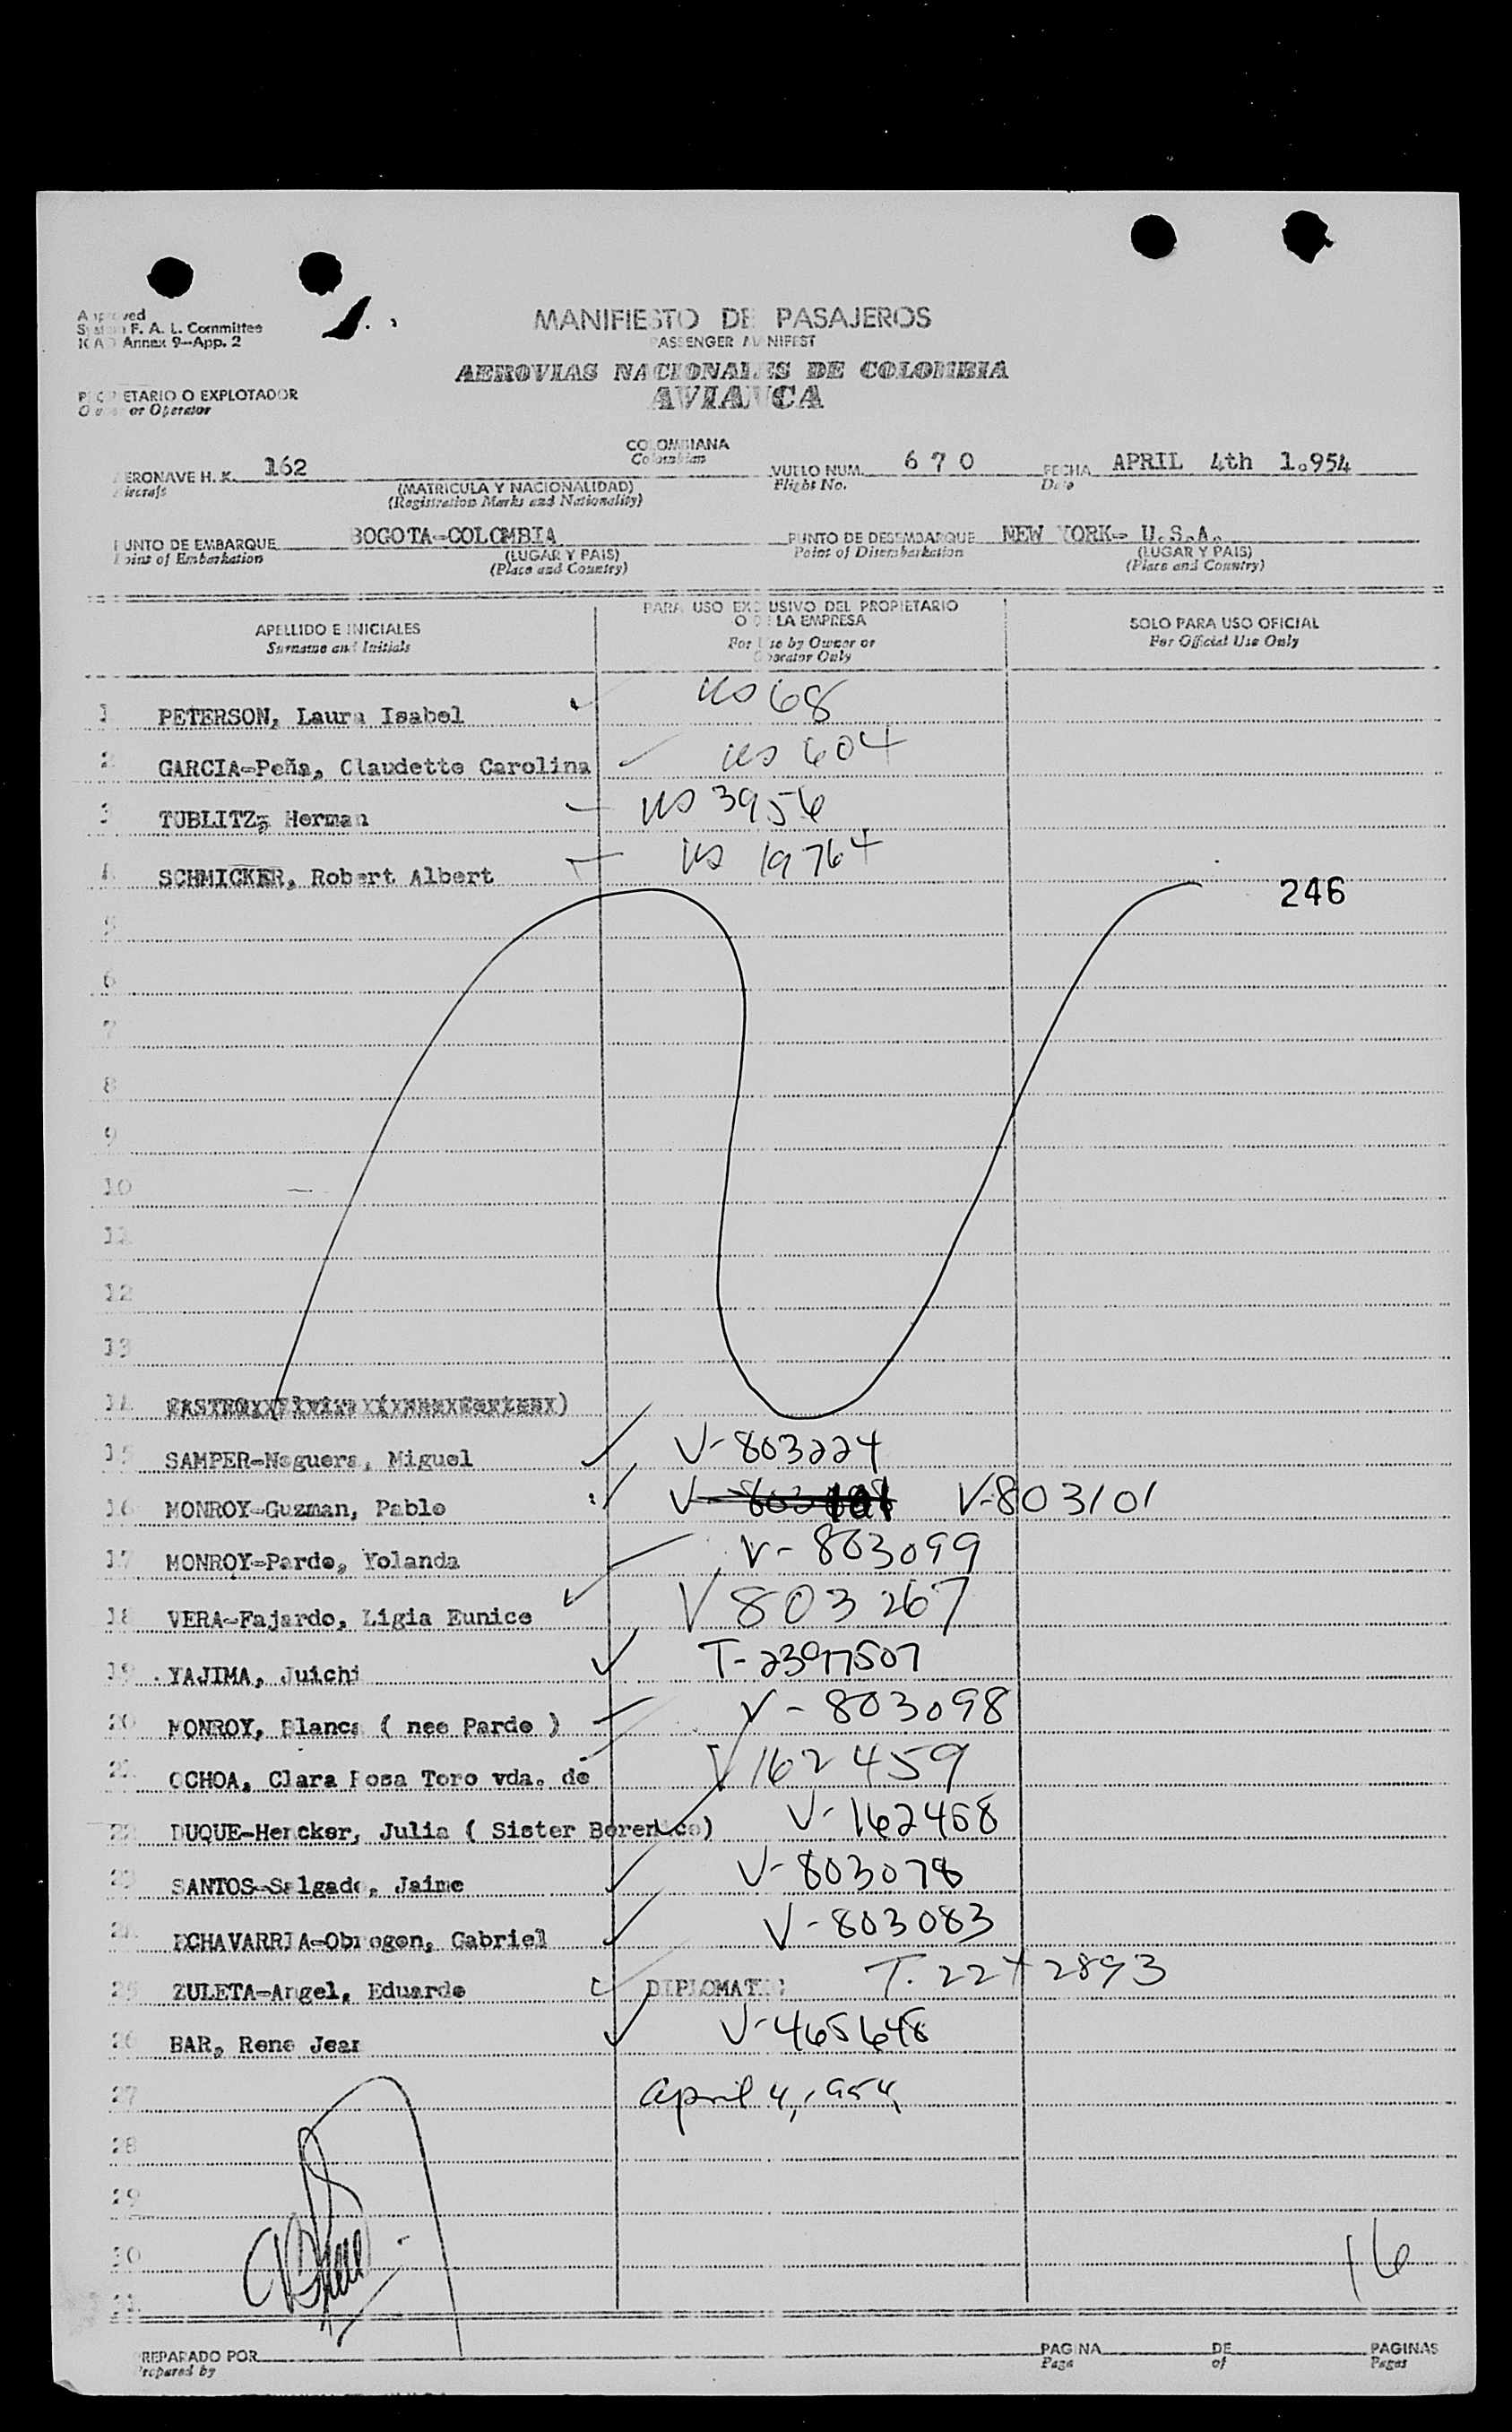 Approved
System F. A. L. Committee
ICAO Annex 9-App. 2
MANIFIESTO DE PASAJEROS
PASSENGER MANIFEST
AEROVIAS NACIONALES DE COLOMBIA
AVIANCA
PROPIETARIO O EXPLOTADOR
Owner or Operator
COLOMBIANA
Colombian
AERONAVE H. K. 162 VUELO NUM. 6 7 0 FECHA APRIL 4th 1.954
Aircraft (MATRICULA Y NACIONALIDAD) Flight No. Date
(Registration Marks and Nationality)
PUNTO DE EMBARQUE BOGOTA-COLOMBIA PUNTO DE DESEMBARQUE NEW YORK- U.S.A.
Point of Embarkation (LUGAR Y PAIS) Point of Disembarkation (LUGAR Y PAIS)
(Place and Country) (Place and Country)
APELLIDO E INICIALES PARA USO EXCLUSIVO DEL PROPIETARIO SOLO PARA USO OFICIAL
O DE LA EMPRESA
Surname and Initials For Use by Owner or For Official Use Only
Operator Only
1 PETERSON, Laura Isabel US 68
2 GARCIA-Peña, Claudette Carolina US 604
3 TUBLITZ, Herman US 3956
4 SCHMICKER, Robert Albert US 19764
246
5
6
7
8
9
10
11
12
13
14
15 SAMPER-Noguera, Miguel V-803224
16 MONROY-Guzman, Pablo V-803101
17 MONROY-Pardo, Yolanda V-803099
18 VERA-Fajardo, Ligia Eunice V 803267
19 YAJIMA, Juichi T-2397507
20 MONROY, Blanca ( nee Pardo ) V-803098
21 OCHOA, Clara Rosa Toro vda. de V 162459
22 DUQUE-Hencker, Julia ( Sister Berenice) V-162458
23 SANTOS-Salgado, Jaime V-803078
24 ECHAVARRIA-Obregon, Gabriel V-803083
25 ZULETA-Angel, Eduardo DIPLOMATIC T-22 2893
26 BAR, Rene Jean V-465648
27 April 4, 1954
28
29
30 16
31
PREPARADO POR PAGINA DE PAGINAS
Prepared by Page of Pages